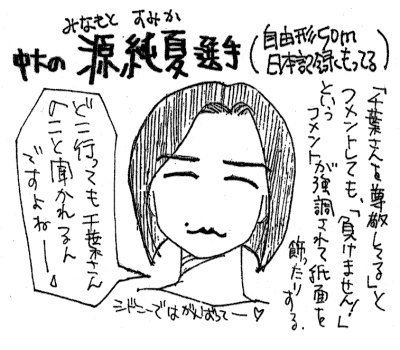 みなもと すみか
中大の 源純夏選手
(自由形50m
日本記録ももってる)
「千葉さんを尊敬してる」と
コメントしても、「負けません!」
という
コメントが強調されて紙面を
飾ったりする。
どこ行っても千葉さん
のこと聞かれるん
ですよねー
シドニーではがんばってー♡